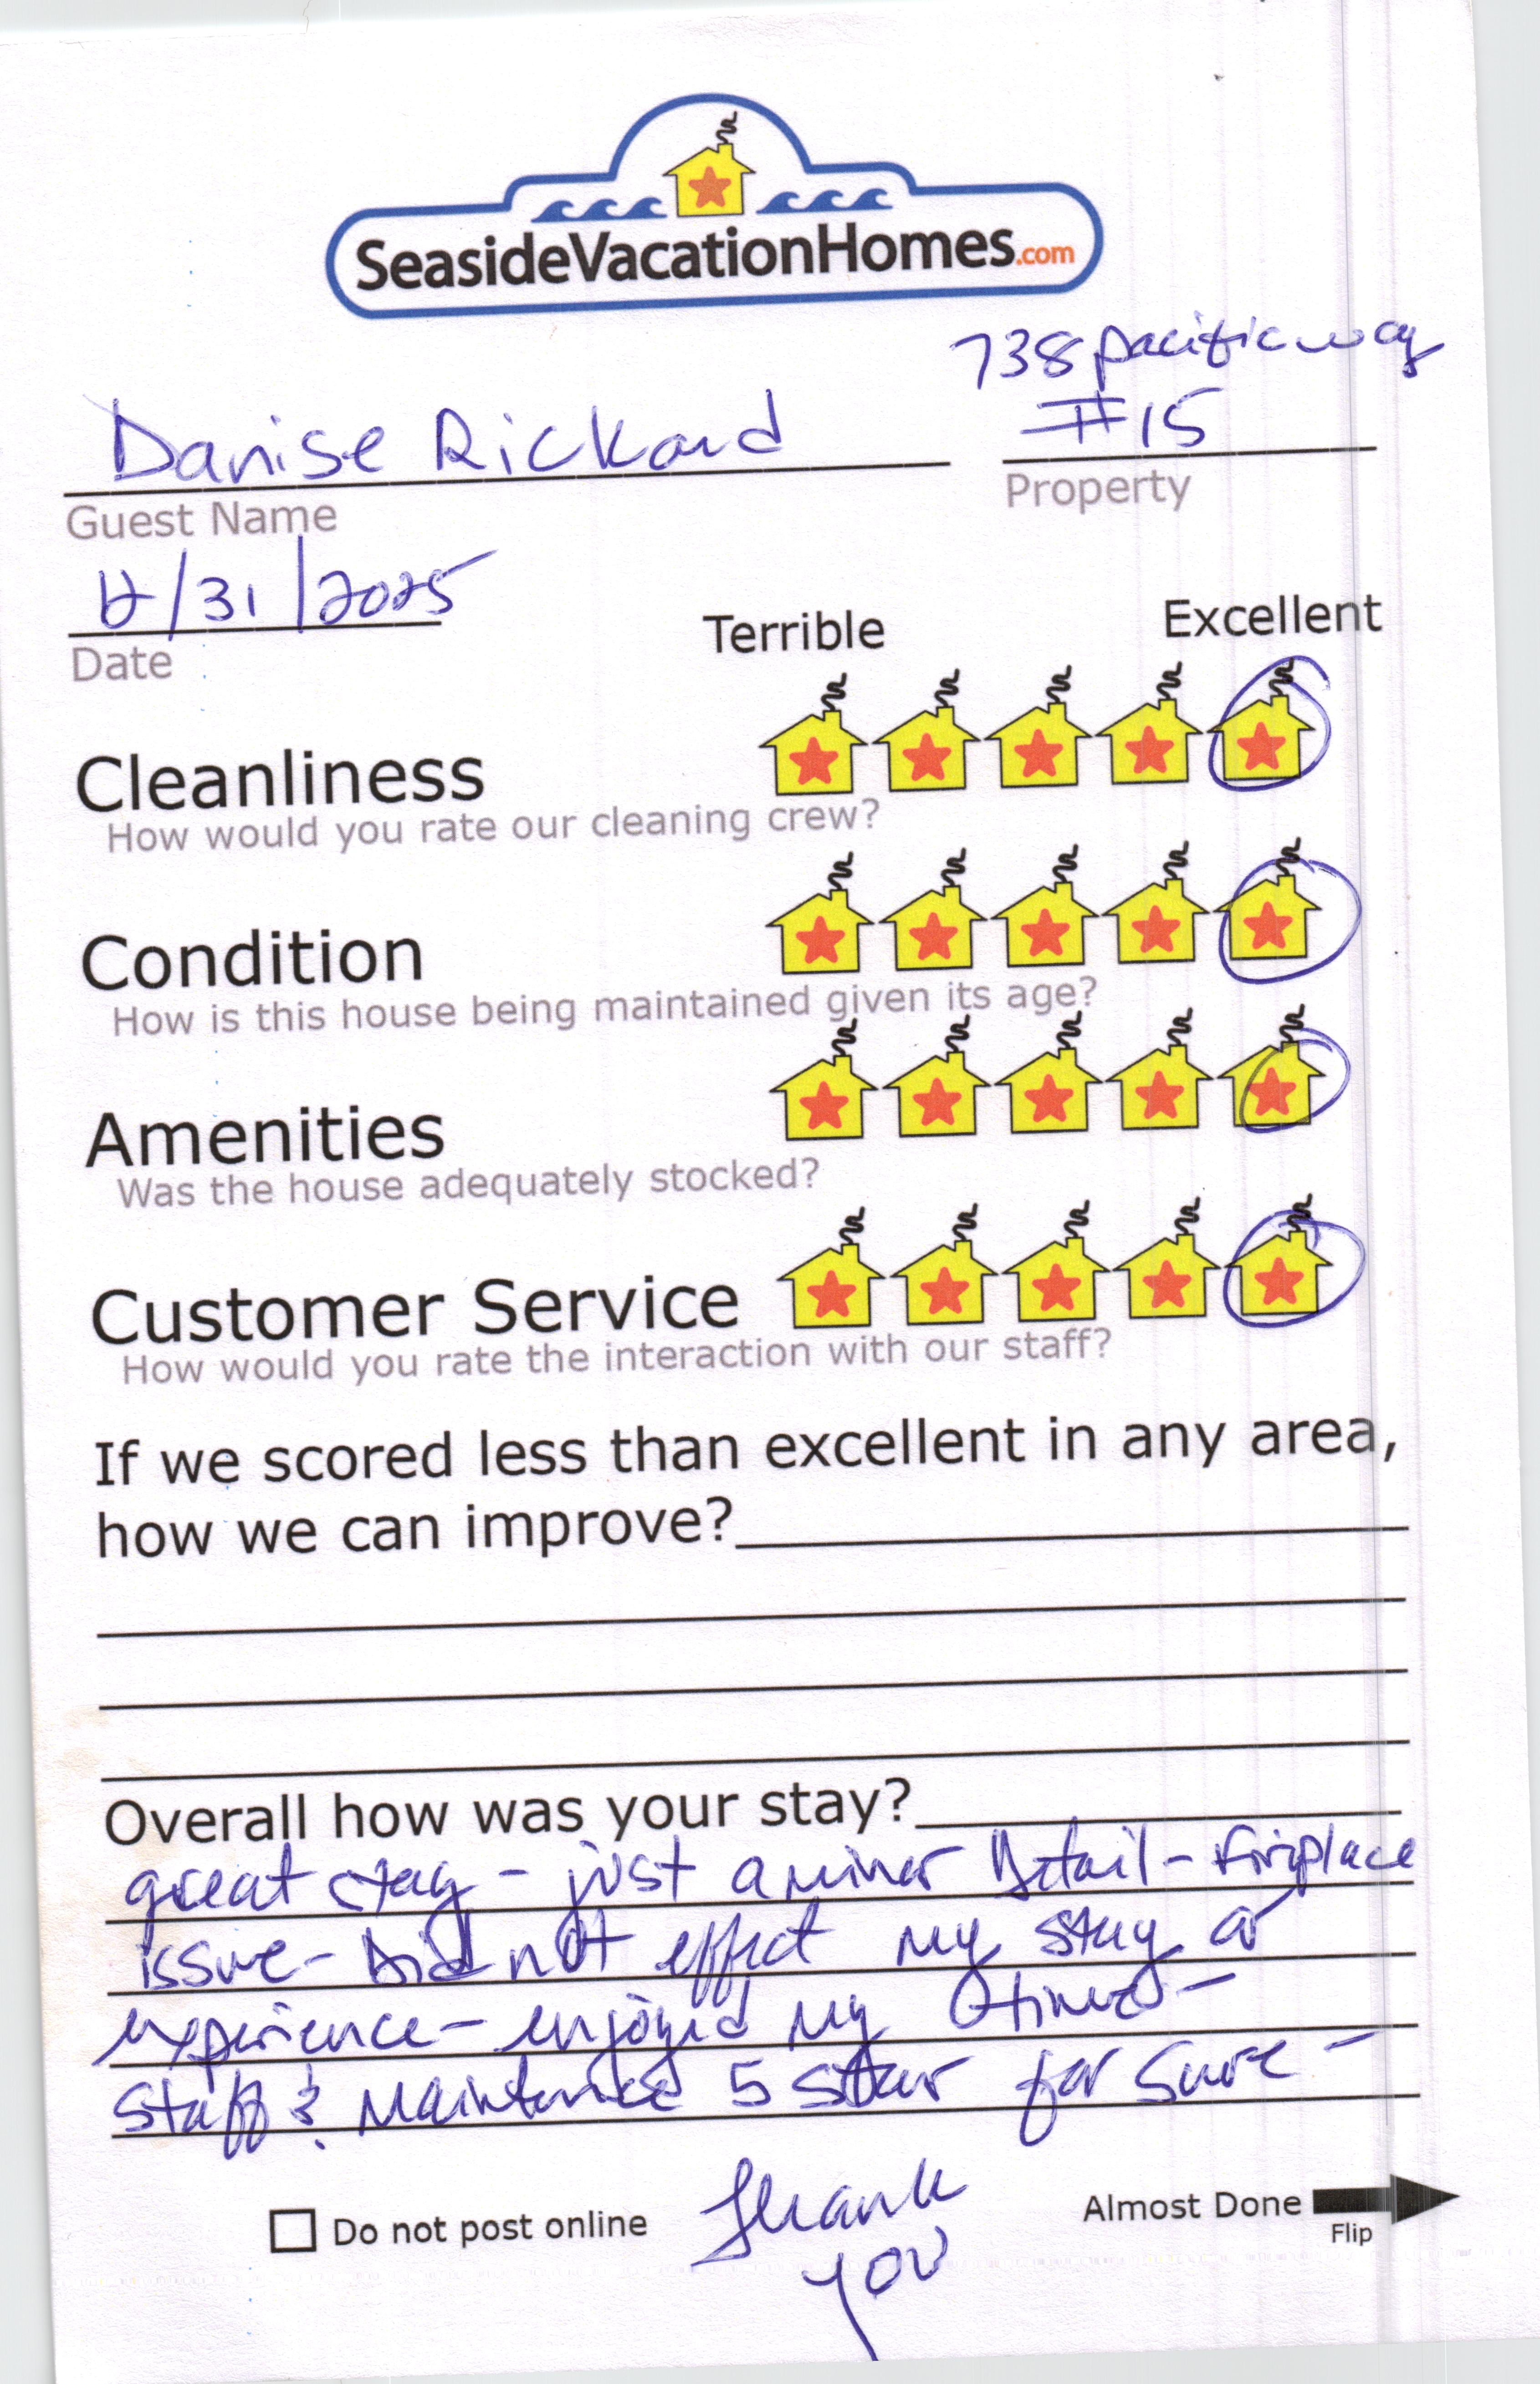 SeasideVacationHomes.com
738 pacific way
Danise Rickard #15
Guest Name Property
12/31/2025
Date
Terrible Excellent
Cleanliness
How would you rate our cleaning crew?
Condition
How is this house being maintained given its age?
Amenities
Was the house adequately stocked?
Customer Service
How would you rate the interaction with our staff?
If we scored less than excellent in any area,
how we can improve?
Overall how was your stay?
great stay - just a minor Detail - Fireplace
issue - Did not effect my stay or
experience - enjoyed my time -
Staff & Maintence 5 star for sure -
Do not post online
Thank
you
Almost Done
Flip